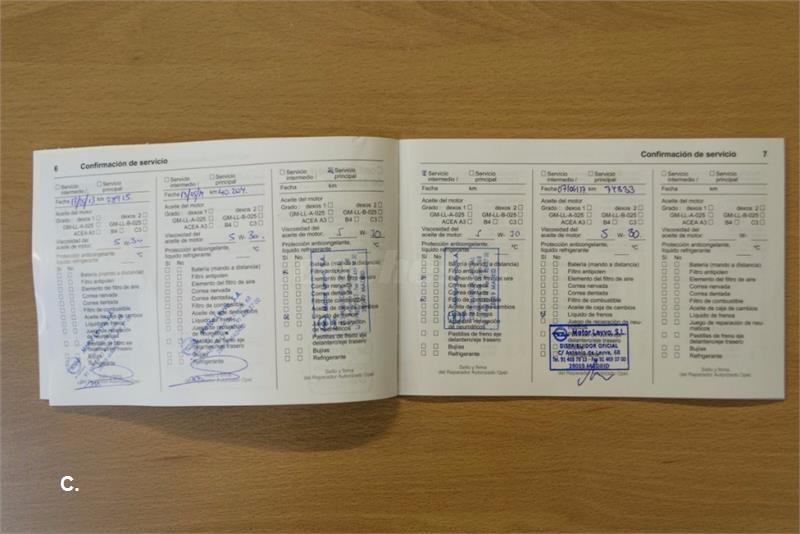 6 Confirmación de servicio
Servicio intermedio / Servicio principal
Fecha km
Aceite del motor
Grado: dexos 1 dexos 2
GM-LL-A-025 GM-LL-B-025
ACEA A3 B4 C3
Viscosidad del
aceite de motor: 5 W- 30
Protección anticongelante,
líquido refrigerante °C
Sí No
Batería (mando a distancia)
Filtro antipolen
Elemento del filtro de aire
Correa nervada
Correa dentada
Filtro de combustible
Líquido de frenos
Bujías
Refrigerante
Servicio intermedio / Servicio principal
Fecha km 40.204
Aceite del motor
Grado: dexos 1 dexos 2
GM-LL-A-025 GM-LL-B-025
ACEA A3 B4 C3
Viscosidad del
aceite de motor: 5 W- 30
Protección anticongelante,
líquido refrigerante °C
Sí No
Batería (mando a distancia)
Filtro antipolen
Elemento del filtro de aire
Correa nervada
Correa dentada
Filtro de combustible
Líquido de frenos
Refrigerante
Servicio intermedio / Servicio principal
Fecha km
Aceite del motor
Grado: dexos 1 dexos 2
GM-LL-A-025 GM-LL-B-025
ACEA A3 B4 C3
Viscosidad del
aceite de motor: 5 W- 30
Protección anticongelante,
líquido refrigerante °C
Sí No
Batería (mando a distancia)
Filtro antipolen
Elemento del filtro de aire
Correa nervada
Correa dentada
Filtro de combustible
Aceite de caja de cambios
Líquido de frenos
Pastillas de freno eje
delantero/eje trasero
Bujías
Refrigerante
Sello y firma
del Reparador Autorizado Opel
Confirmación de servicio 7
Servicio intermedio / Servicio principal
Fecha km
Aceite del motor
Grado: dexos 1 dexos 2
GM-LL-A-025 GM-LL-B-025
ACEA A3 B4 C3
Viscosidad del
aceite de motor: 5 W- 30
Protección anticongelante,
líquido refrigerante °C
Sí No
Batería (mando a distancia)
Filtro antipolen
Elemento del filtro de aire
Correa nervada
Correa dentada
Filtro de combustible
Aceite de caja de cambios
Líquido de frenos
Juego de reparación de
neumáticos
Pastillas de freno eje
delantero/eje trasero
Bujías
Refrigerante
Sello y firma
del Reparador Autorizado Opel
Servicio intermedio / Servicio principal
Fecha km 74833
Aceite del motor
Grado: dexos 1 dexos 2
GM-LL-A-025 GM-LL-B-025
ACEA A3 B4 C3
Viscosidad del
aceite de motor: 5 W- 30
Protección anticongelante,
líquido refrigerante °C
Sí No
Batería (mando a distancia)
Filtro antipolen
Elemento del filtro de aire
Correa nervada
Correa dentada
Filtro de combustible
Aceite de caja de cambios
Líquido de frenos
Juego de reparación de neu-
máticos
Motor Leyva, S.L.
DISTRIBUIDOR OFICIAL
C/ Antonio de Leyva, 68
28019 MADRID
Servicio intermedio / Servicio principal
Fecha km
Aceite del motor
Grado: dexos 1 dexos 2
GM-LL-A-025 GM-LL-B-025
ACEA A3 B4 C3
Viscosidad del
aceite de motor: W-
Protección anticongelante,
líquido refrigerante °C
Sí No
Batería (mando a distancia)
Filtro antipolen
Elemento del filtro de aire
Correa nervada
Correa dentada
Filtro de combustible
Aceite de caja de cambios
Líquido de frenos
Juego de reparación de neu-
máticos
Pastillas de freno eje
delantero/eje trasero
Bujías
Refrigerante
Sello y firma
del Reparador Autorizado Opel
C.